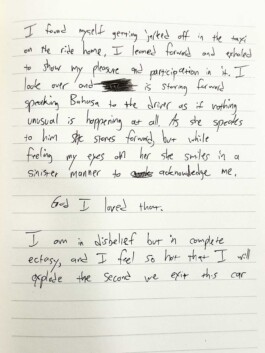 I found myself getting jerked off in the taxi
on the ride home. I leaned forward and exhaled
to show my pleasure and participation in it. I
look over and is staring forward
speaking Bahasa to the driver as if nothing
unusual is happening at all. As she speaks
to him she stares forward but while
feeling my eyes on her she smiles in a
sinister manner to acknowledge me.
God I loved that.
I am in disbelief but in complete
ecstasy, and I feel so hot that I will
explode the second we exit this car